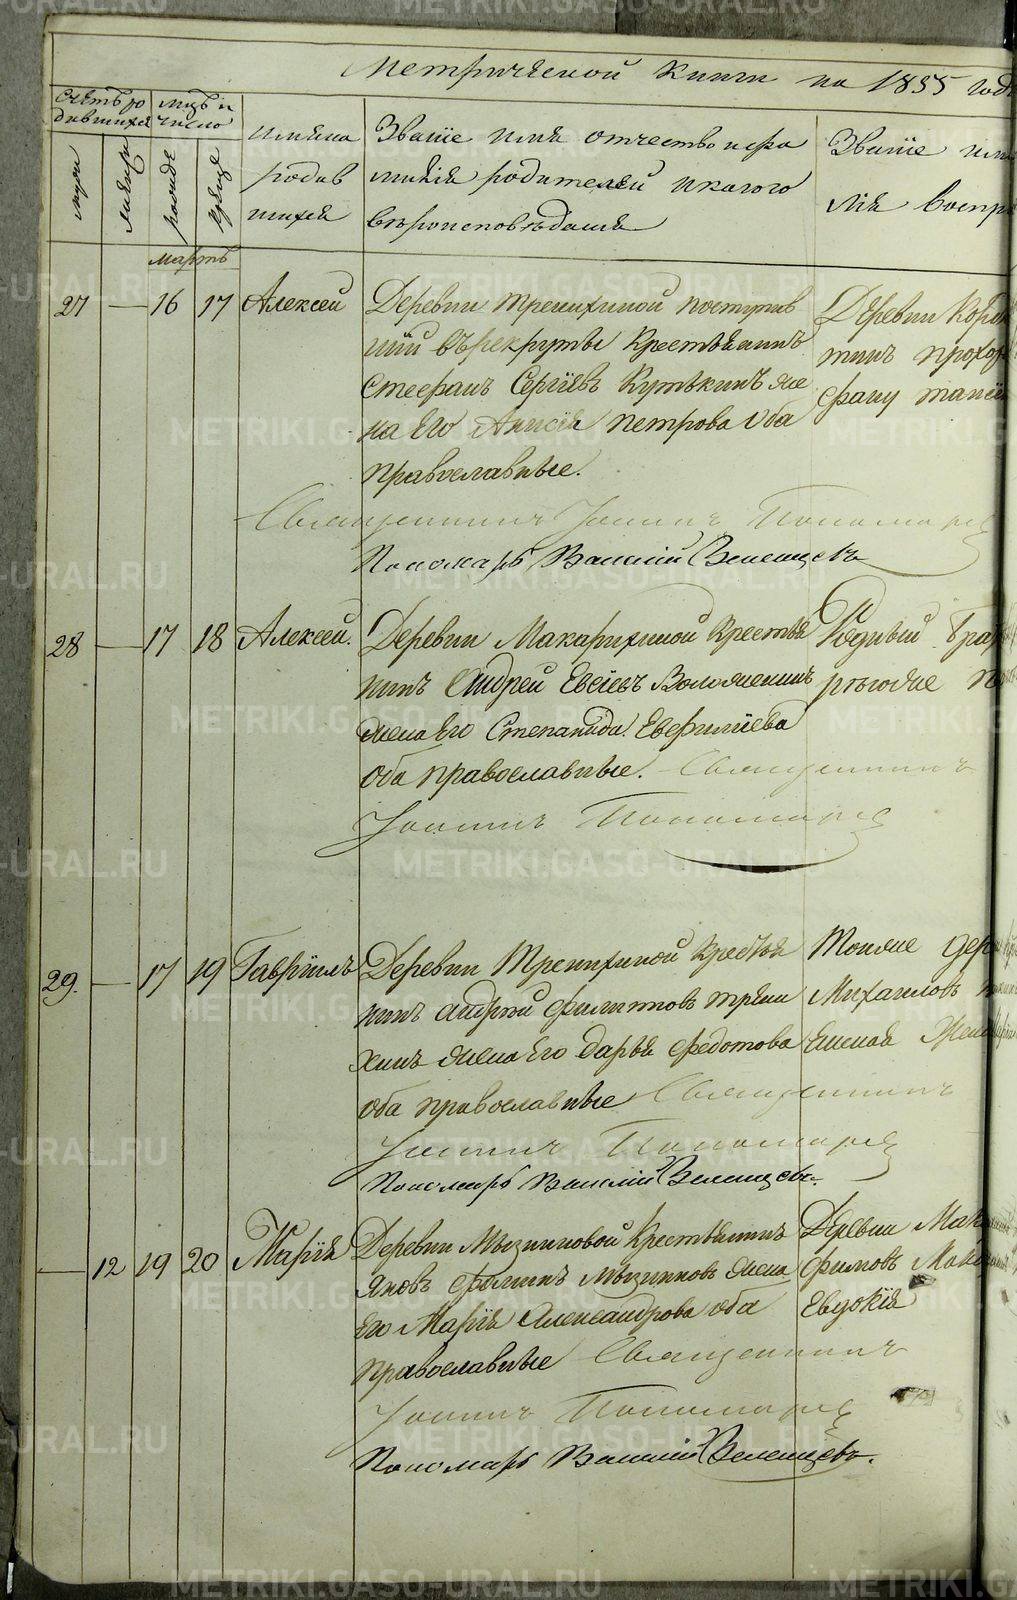 Метрической книги на 1855 годъ
Счетъ ро
дившихся
Мцъ и
число
мужи
женск
рожде
креще
имяна
родив
шихся
Званіе имя отчество и фа
милія родителей и какого
вѣроисповѣданія
Званіе имя
лія воспр
мартъ
27 — 16 17 Алексѣй
Деревни Тренихиной поступив
шій въ рекруты крестьянинъ
Стефанъ Сергѣевъ Кутькинъ же
на Его Анисія Петрова Оба
православные.
Деревни
тинъ прохор
Священникъ Іоаннъ Пономарев
Пономарь Василій
28 — 17 18 Алексѣй.
Деревни Макарихиной крестья
нинъ Андрей
жена Его Степанида
оба православные. Священникъ
Іоаннъ Пономарев
Родный
29. — 17 19 Гавріилъ
Деревни Тренихиной крестья
нинъ Андрей Филиповъ трени
хинъ жена Его Дарья Федотова
оба православные Священникъ
Іоаннъ Пономарев
Пономарь Василій
Тояже дер
Михаиловъ
— 12 19 20 Марія
Деревни Мызниковой Крестьянинъ
Яковъ Филинъ Мызниковъ жена
Его Марія Александрова оба
православные Священникъ
Іоаннъ Пономарев
Пономарь Василій
Деревни Мак
фимовъ
Евдокія
METRIKI.GASO-URAL.RU